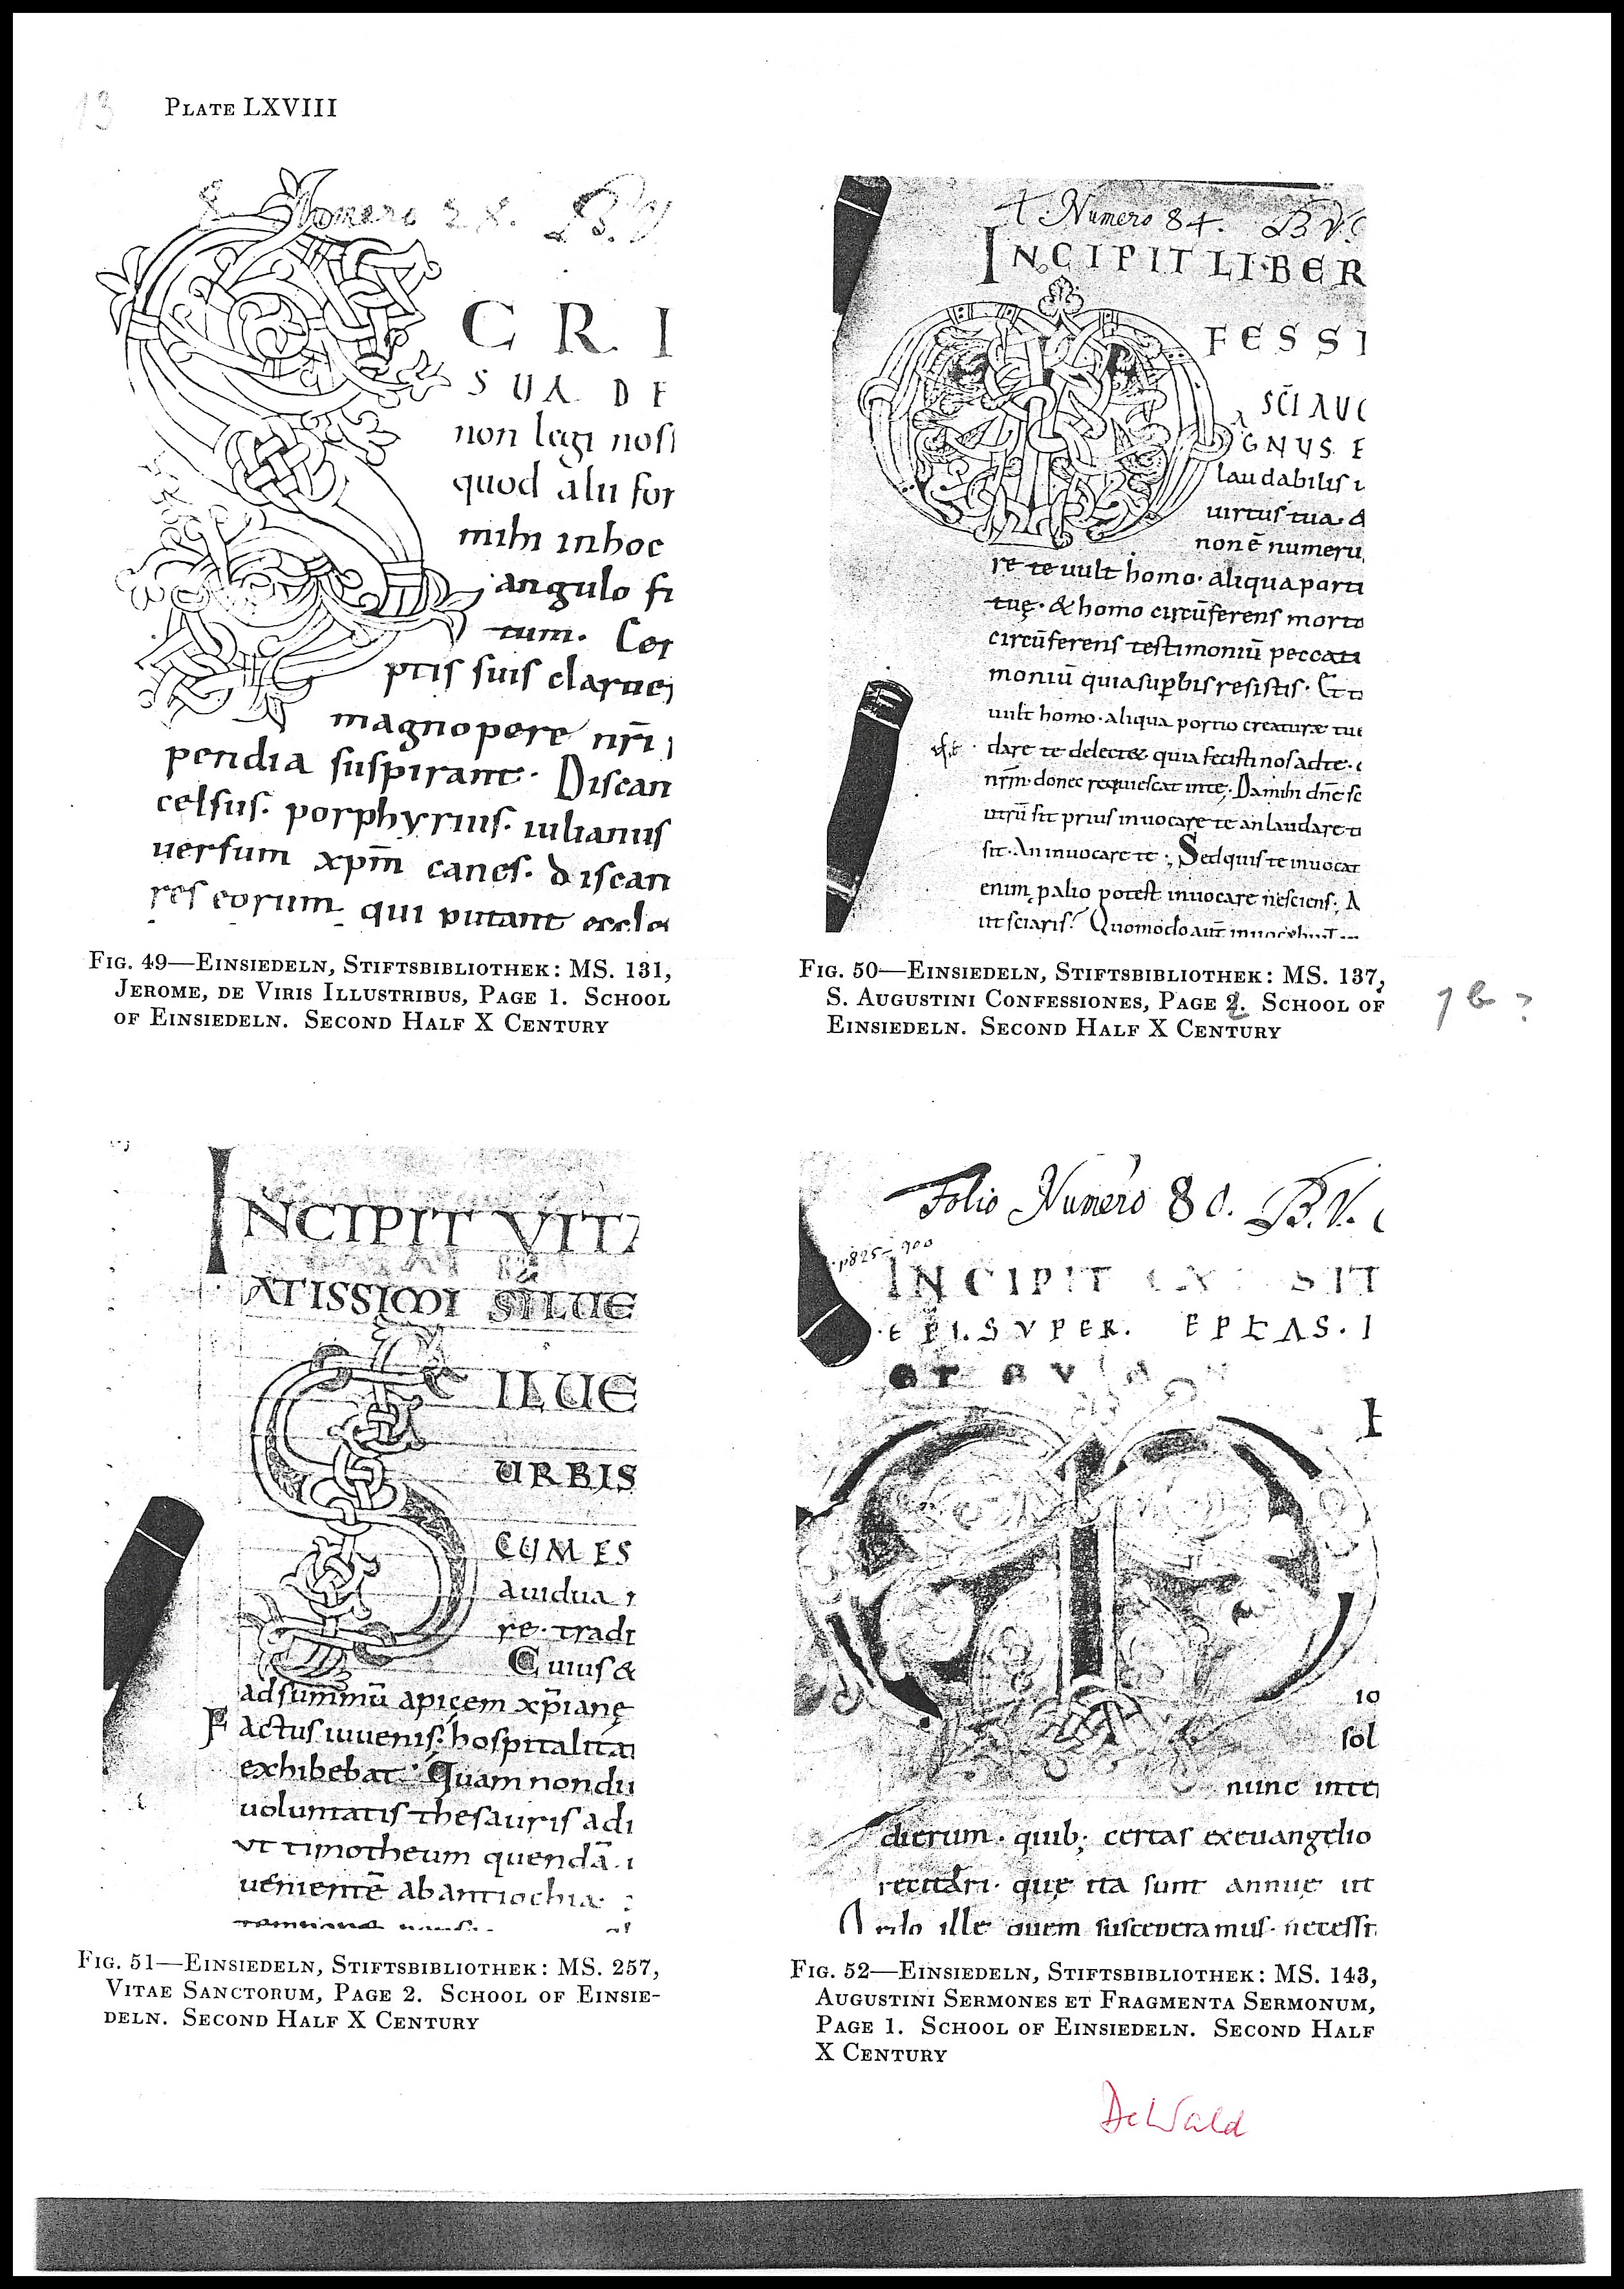 13
PLATE LXVIII
Numero 28. B.V.
CRI
SUA DE
non legi nosſ
quod alii for
mihi inhoc
angulo fi
tum. Cer
ptis suis claruer
magnopere nr̄i
pendia suspirant. Discan
celsus. porphyrius. iulianus
uersum xpm̄ canes. discan
res eorum qui putant eccle
FIG. 49—EINSIEDELN, STIFTSBIBLIOTHEK: MS. 131,
JEROME, DE VIRIS ILLUSTRIBUS, PAGE 1. SCHOOL
OF EINSIEDELN. SECOND HALF X CENTURY
t. Numero 84. B.V.
INCIPIT LIBER
FESSI
SC̄I AUG
GNUS E
laudabilis
uirtus tua. &
non ē numeru
re te uult homo. aliqua porti
tuę. & homo circūferens morta
circūferens testimoniū peccati
moniū quia supbis resistis. Et
uult homo. aliqua portio creaturæ tue
dare te delectet quia fecisti nos ad te.
nr̄m. donec requiescat inte. Da mihi dn̄e sc
utrū sit prius inuocare te an laudare
sit. An inuocare te; Sed quis te inuocat
enim palio potest inuocare nesciens;
ut sciaris? Quomodo aut inuocabunt
FIG. 50—EINSIEDELN, STIFTSBIBLIOTHEK: MS. 137,
S. AUGUSTINI CONFESSIONES, PAGE 2. SCHOOL OF
EINSIEDELN. SECOND HALF X CENTURY
1 6 ?
INCIPIT VITA
ATISSIMI SILUE
ILUE
URBIS
CUM ES
auidua
re. tradi
Cuius &
adsummū apicem xp̄ianę
Factus iuuenis: hospitalita
exhibebat. Quam nondu
uoluntatis thesauris adi
ut timotheum quendā
uenientē ab antiochia
FIG. 51—EINSIEDELN, STIFTSBIBLIOTHEK: MS. 257,
VITAE SANCTORUM, PAGE 2. SCHOOL OF EINSIE-
DELN. SECOND HALF X CENTURY
Folio Numero 80. B.V.
825-900
INCIPIT EX SIT
EPI. SVPER. EPLAS. I
10
sol
nunc inte
dierum. quib; certas exeuangelio
recitari. que ita sunt annue ut
ille quem susceperamus. necessi
FIG. 52—EINSIEDELN, STIFTSBIBLIOTHEK: MS. 143,
AUGUSTINI SERMONES ET FRAGMENTA SERMONUM,
PAGE 1. SCHOOL OF EINSIEDELN. SECOND HALF
X CENTURY
DeWald